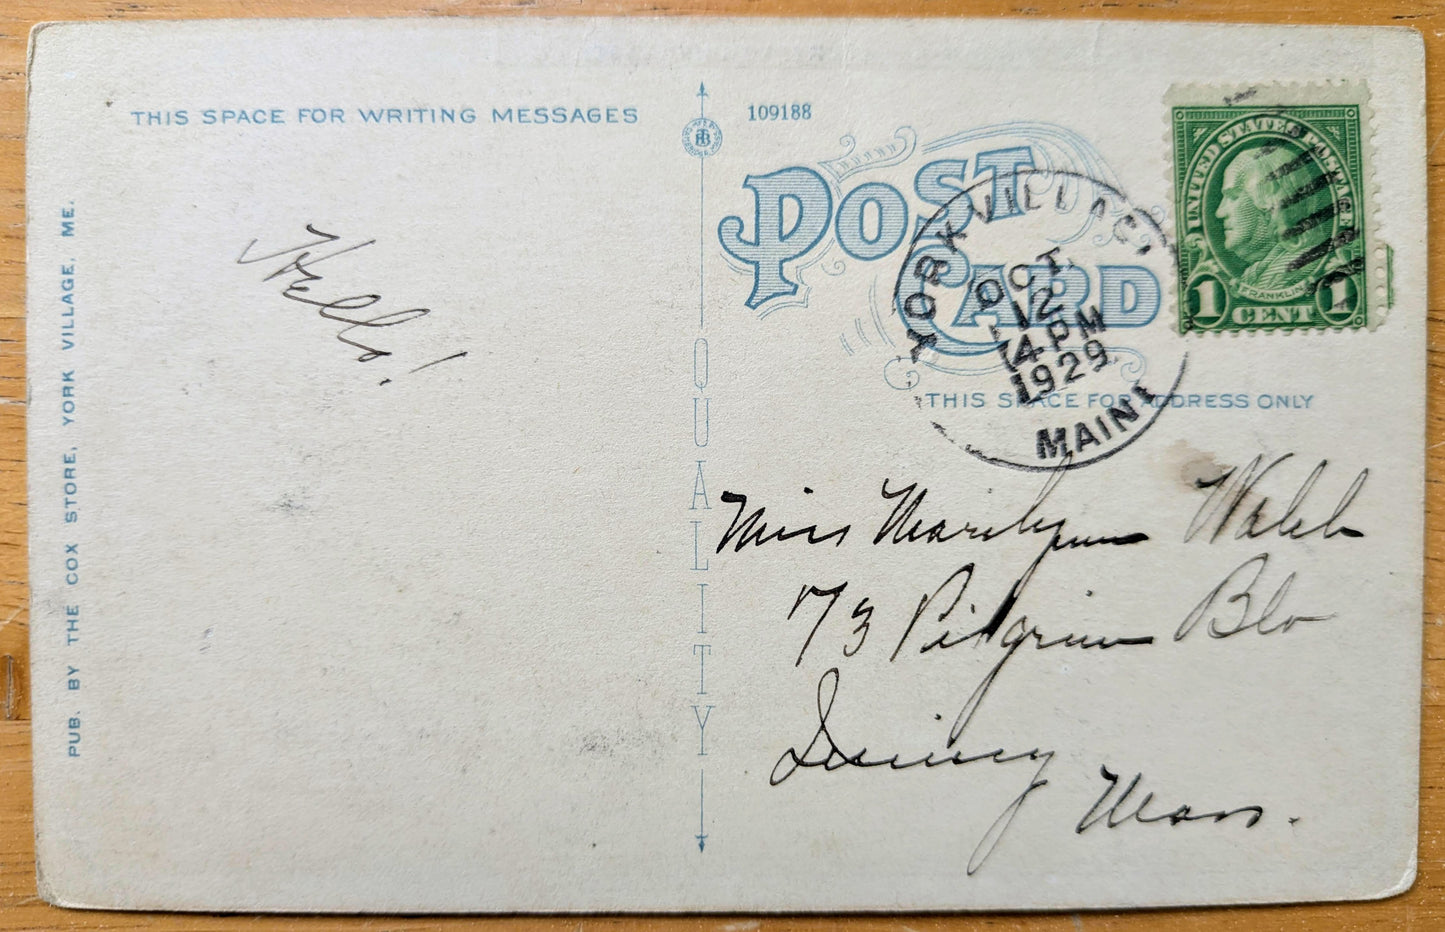 THIS SPACE FOR WRITING MESSAGES
109188
POST CARD
THIS SPACE FOR ADDRESS ONLY
YORK VILLAGE
OCT
12
4 PM
1929
MAINE
UNITED STATES POSTAGE
FRANKLIN
1 CENT 1
Hello!
Miss Marilynn Walsh
73 Pilgrim Blv
Quincy
Mass.
QUALITY
PUB. BY THE COX STORE, YORK VILLAGE, ME.